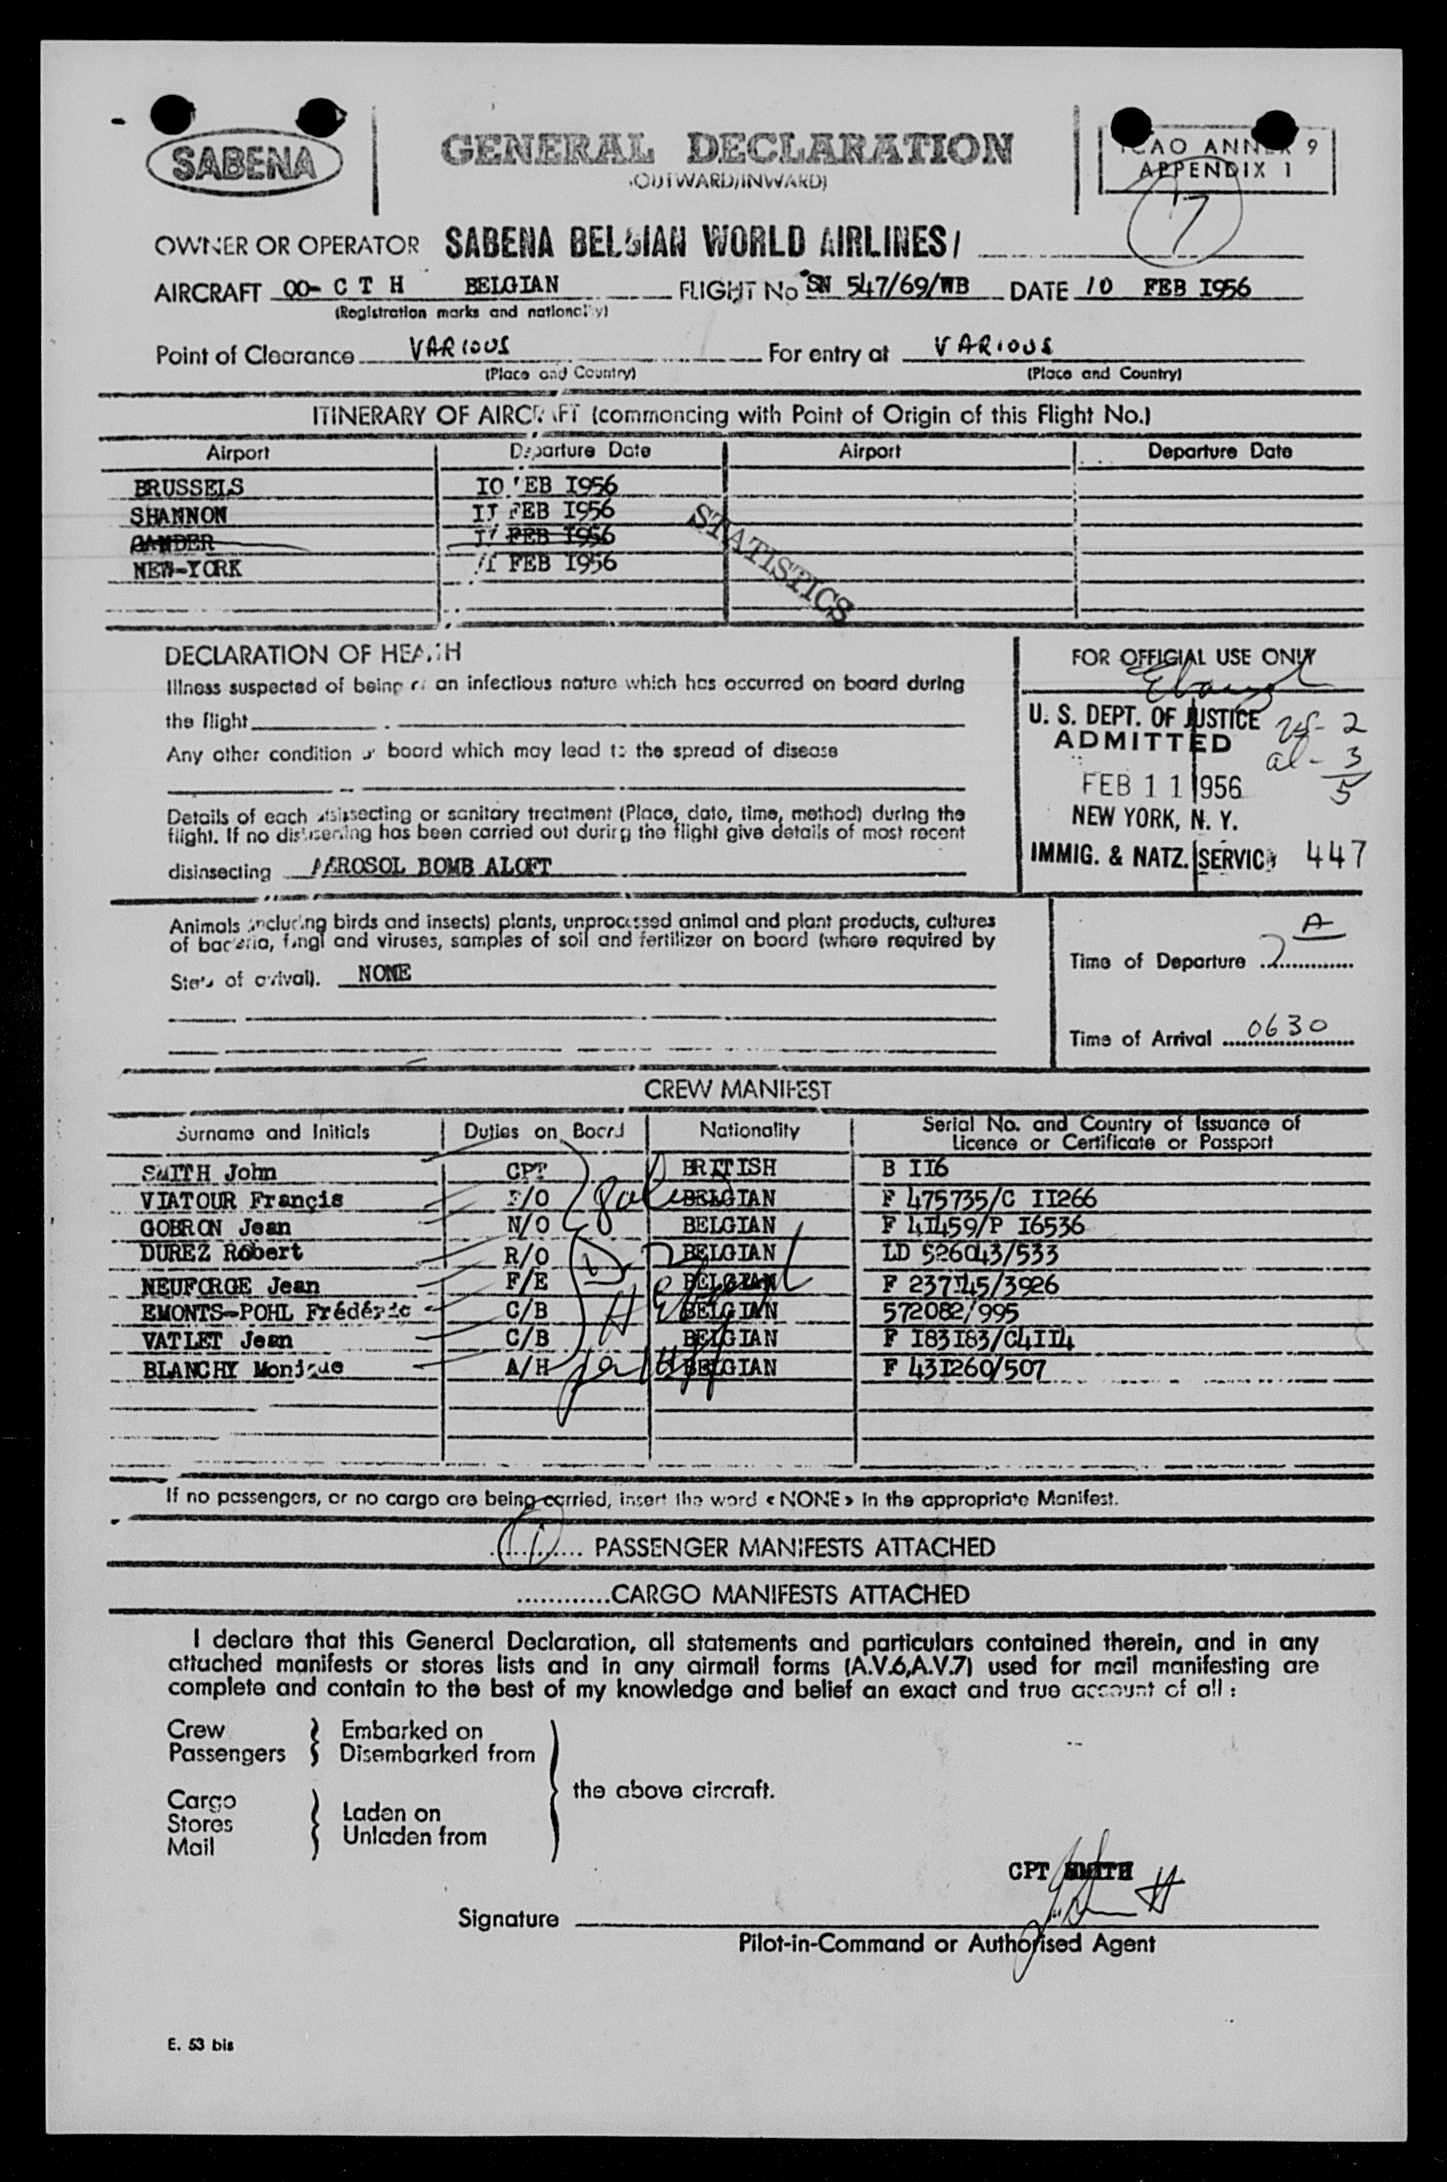 SABENA
GENERAL DECLARATION
(OUTWARD/INWARD)
ICAO ANNEX 9
APPENDIX 1
17
OWNER OR OPERATOR SABENA BELGIAN WORLD AIRLINES/
AIRCRAFT OO- C T H BELGIAN FLIGHT No SN 547/69/WB DATE 10 FEB I956
(Registration marks and nationality)
Point of Clearance VARIOUS For entry at VARIOUS
(Place and Country) (Place and Country)
ITINERARY OF AIRCRAFT (commencing with Point of Origin of this Flight No.)
Airport Departure Date Airport Departure Date
BRUSSELS IO FEB I956
SHANNON II FEB I956
GANDER II FEB I956
NEW-YORK II FEB I956
STATISTICS
DECLARATION OF HEALTH
Illness suspected of being of an infectious nature which has occurred on board during
the flight
Any other condition on board which may lead to the spread of disease
Details of each disinsecting or sanitary treatment (Place, date, time, method) during the
flight. If no disinsecting has been carried out during the flight give details of most recent
disinsecting AEROSOL BOMB ALOFT
FOR OFFICIAL USE ONLY
U. S. DEPT. OF JUSTICE
ADMITTED
FEB 11 1956
NEW YORK, N. Y.
IMMIG. & NATZ. SERVICE 447
us - 2
al - 3
5
Animals including birds and insects) plants, unprocessed animal and plant products, cultures
of bacteria, fungi and viruses, samples of soil and fertilizer on board (where required by
State of arrival). NONE
A
Time of Departure
Time of Arrival 0630
CREW MANIFEST
Surname and Initials Duties on Board Nationality Serial No. and Country of Issuance of
Licence or Certificate or Passport
SMITH John CPT BRITISH B II6
VIATOUR Francis F/O BELGIAN F 475735/C II266
GOBRON Jean N/O BELGIAN F 4I459/P I6536
DUREZ Robert R/O BELGIAN LD 526043/533
NEUFORGE Jean F/E BELGIAN F 237I45/3926
EMONTS-POHL Frédéric C/B BELGIAN 572082/995
VATLET Jean C/B BELGIAN F I83I83/C4II4
BLANCHY Monique A/H BELGIAN F 43I260/507
If no passengers, or no cargo are being carried, insert the word « NONE » in the appropriate Manifest.
1 PASSENGER MANIFESTS ATTACHED
............CARGO MANIFESTS ATTACHED
I declare that this General Declaration, all statements and particulars contained therein, and in any
attached manifests or stores lists and in any airmail forms (A.V.6,A.V.7) used for mail manifesting are
complete and contain to the best of my knowledge and belief an exact and true account of all :
Crew Embarked on
Passengers Disembarked from
the above aircraft.
Cargo
Stores Laden on
Mail Unladen from
CPT SMITH
Signature
Pilot-in-Command or Authorised Agent
E. 53 bis